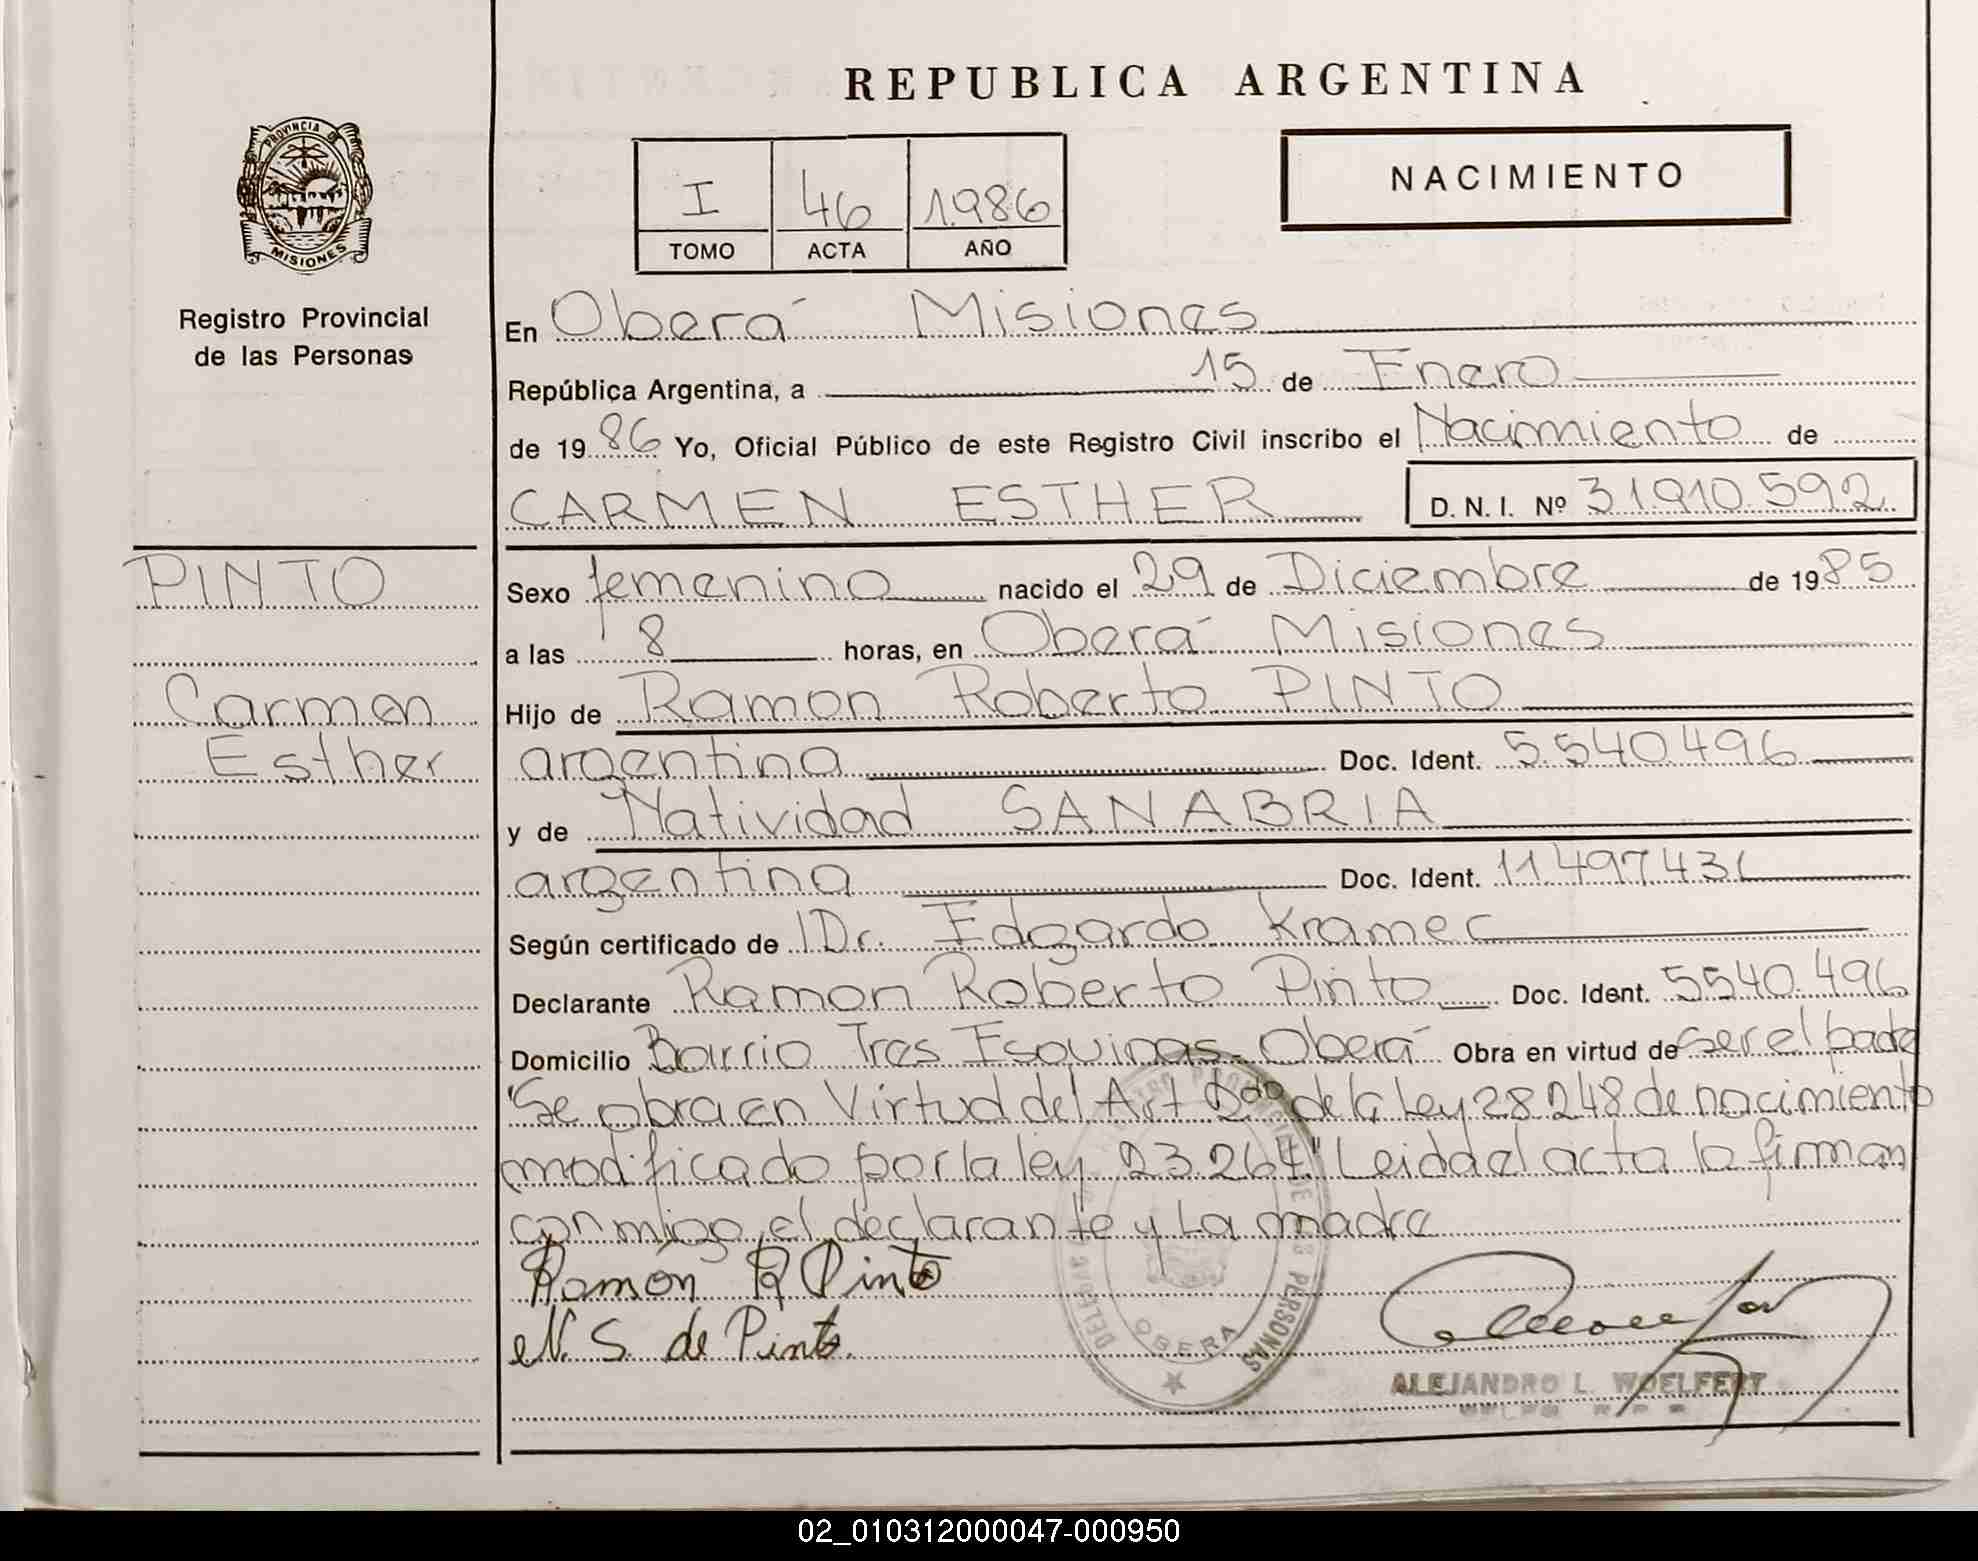 REPUBLICA ARGENTINA
PROVINCIA DE
MISIONES
Registro Provincial
de las Personas
I 46 1.986
TOMO ACTA AÑO
NACIMIENTO
En Oberá Misiones
República Argentina, a 15 de Enero
de 1986 Yo, Oficial Público de este Registro Civil inscribo el Nacimiento de
CARMEN ESTHER D. N. I. Nº 31.910.592
PINTO
Carmen
Esther
Sexo femenino nacido el 29 de Diciembre de 1985
a las 8 horas, en Oberá Misiones
Hijo de Ramon Roberto PINTO
argentina Doc. Ident. 5.540.496
y de Natividad SANABRIA
argentina Doc. Ident. 11.497.431
Según certificado de Dr. Edgardo Kramer
Declarante Ramon Roberto Pinto Doc. Ident. 5540.496
Domicilio Barrio Tres Esquinas - Oberá Obra en virtud de ser el padre
"Se obra en Virtud del Art de la Ley 28248 de nacimiento
modificado por la ley 23.264." Leida el acta la firman
conmigo el declarante y La madre
Ramón R Pinto
N. S. de Pinto.
OBERA
PERSONAS
ALEJANDRO L. WOELFERT
02_010312000047-000950